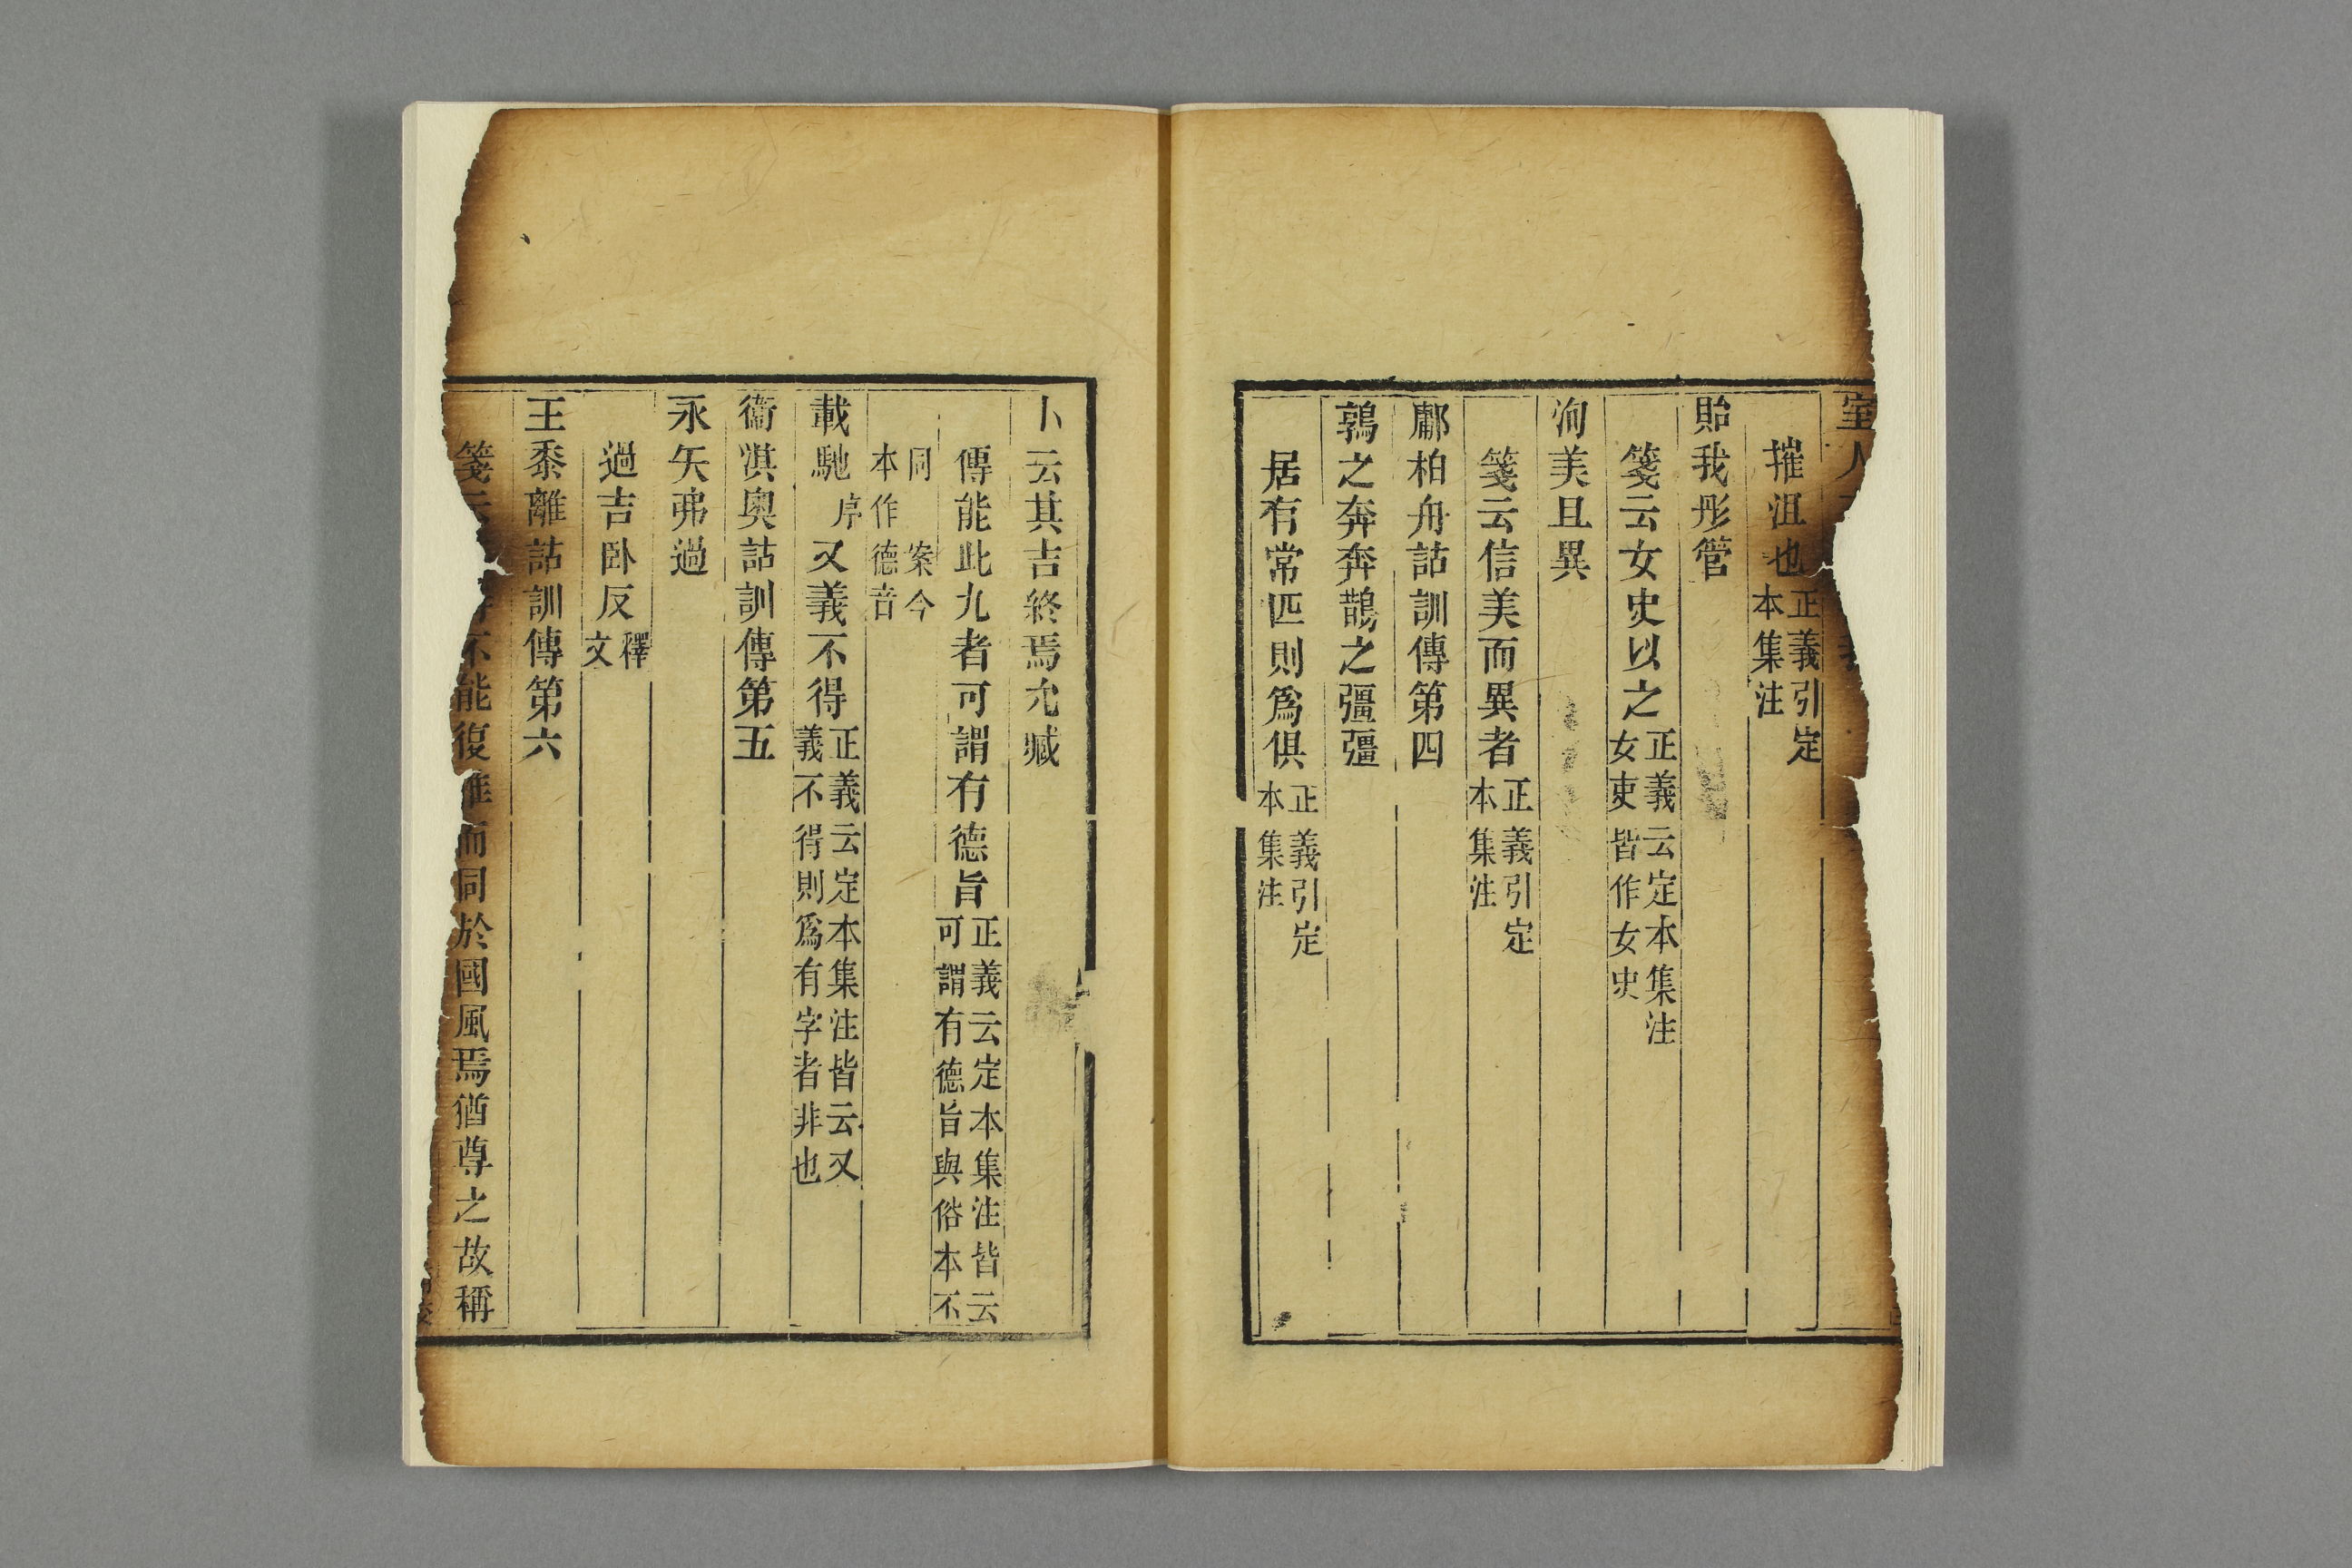 室人
摧沮也正義引定本集注
貽我彤管
箋云女史以之正義云定本集注女吏皆作女史
洵美且異
箋云信美而異者正義引定本集注
鄘柏舟詁訓傳第四
鶉之奔奔鵲之彊彊
居有常匹則為俱正義引定本集注
卜云其吉終焉允臧
傳能此九者可謂有德旨正義云定本集注皆云可謂有德旨與俗本不
同 案今本作德音
載馳序 又義不得正義云定本集注皆云又義不得則爲有字者非也
衞淇奧詁訓傳第五
永矢弗過
過吉卧反釋文
王黍離詁訓傳第六
箋云不能復雅而同於國風焉猶尊之故稱